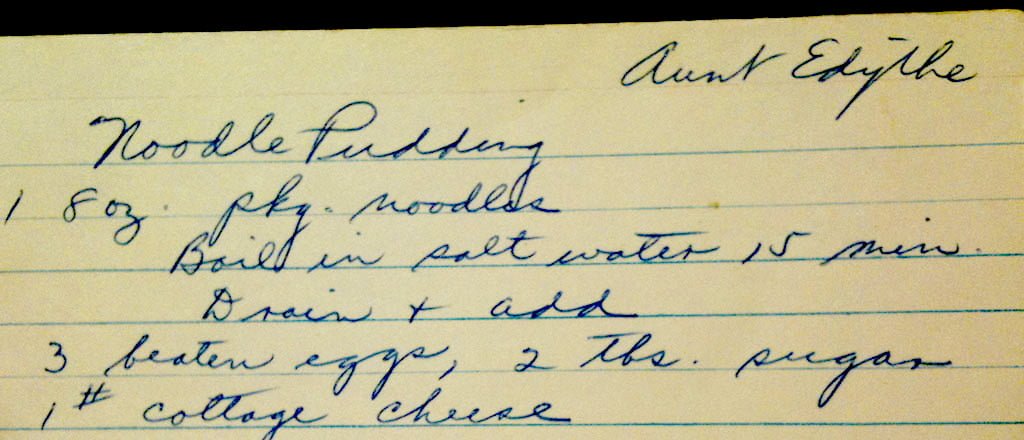 Aunt Edythe
Noodle Pudding
1 8 oz. pkg. noodles
Boil in salt water 15 min.
Drain + add
3 beaten eggs, 2 tbs. sugar
1# cottage cheese